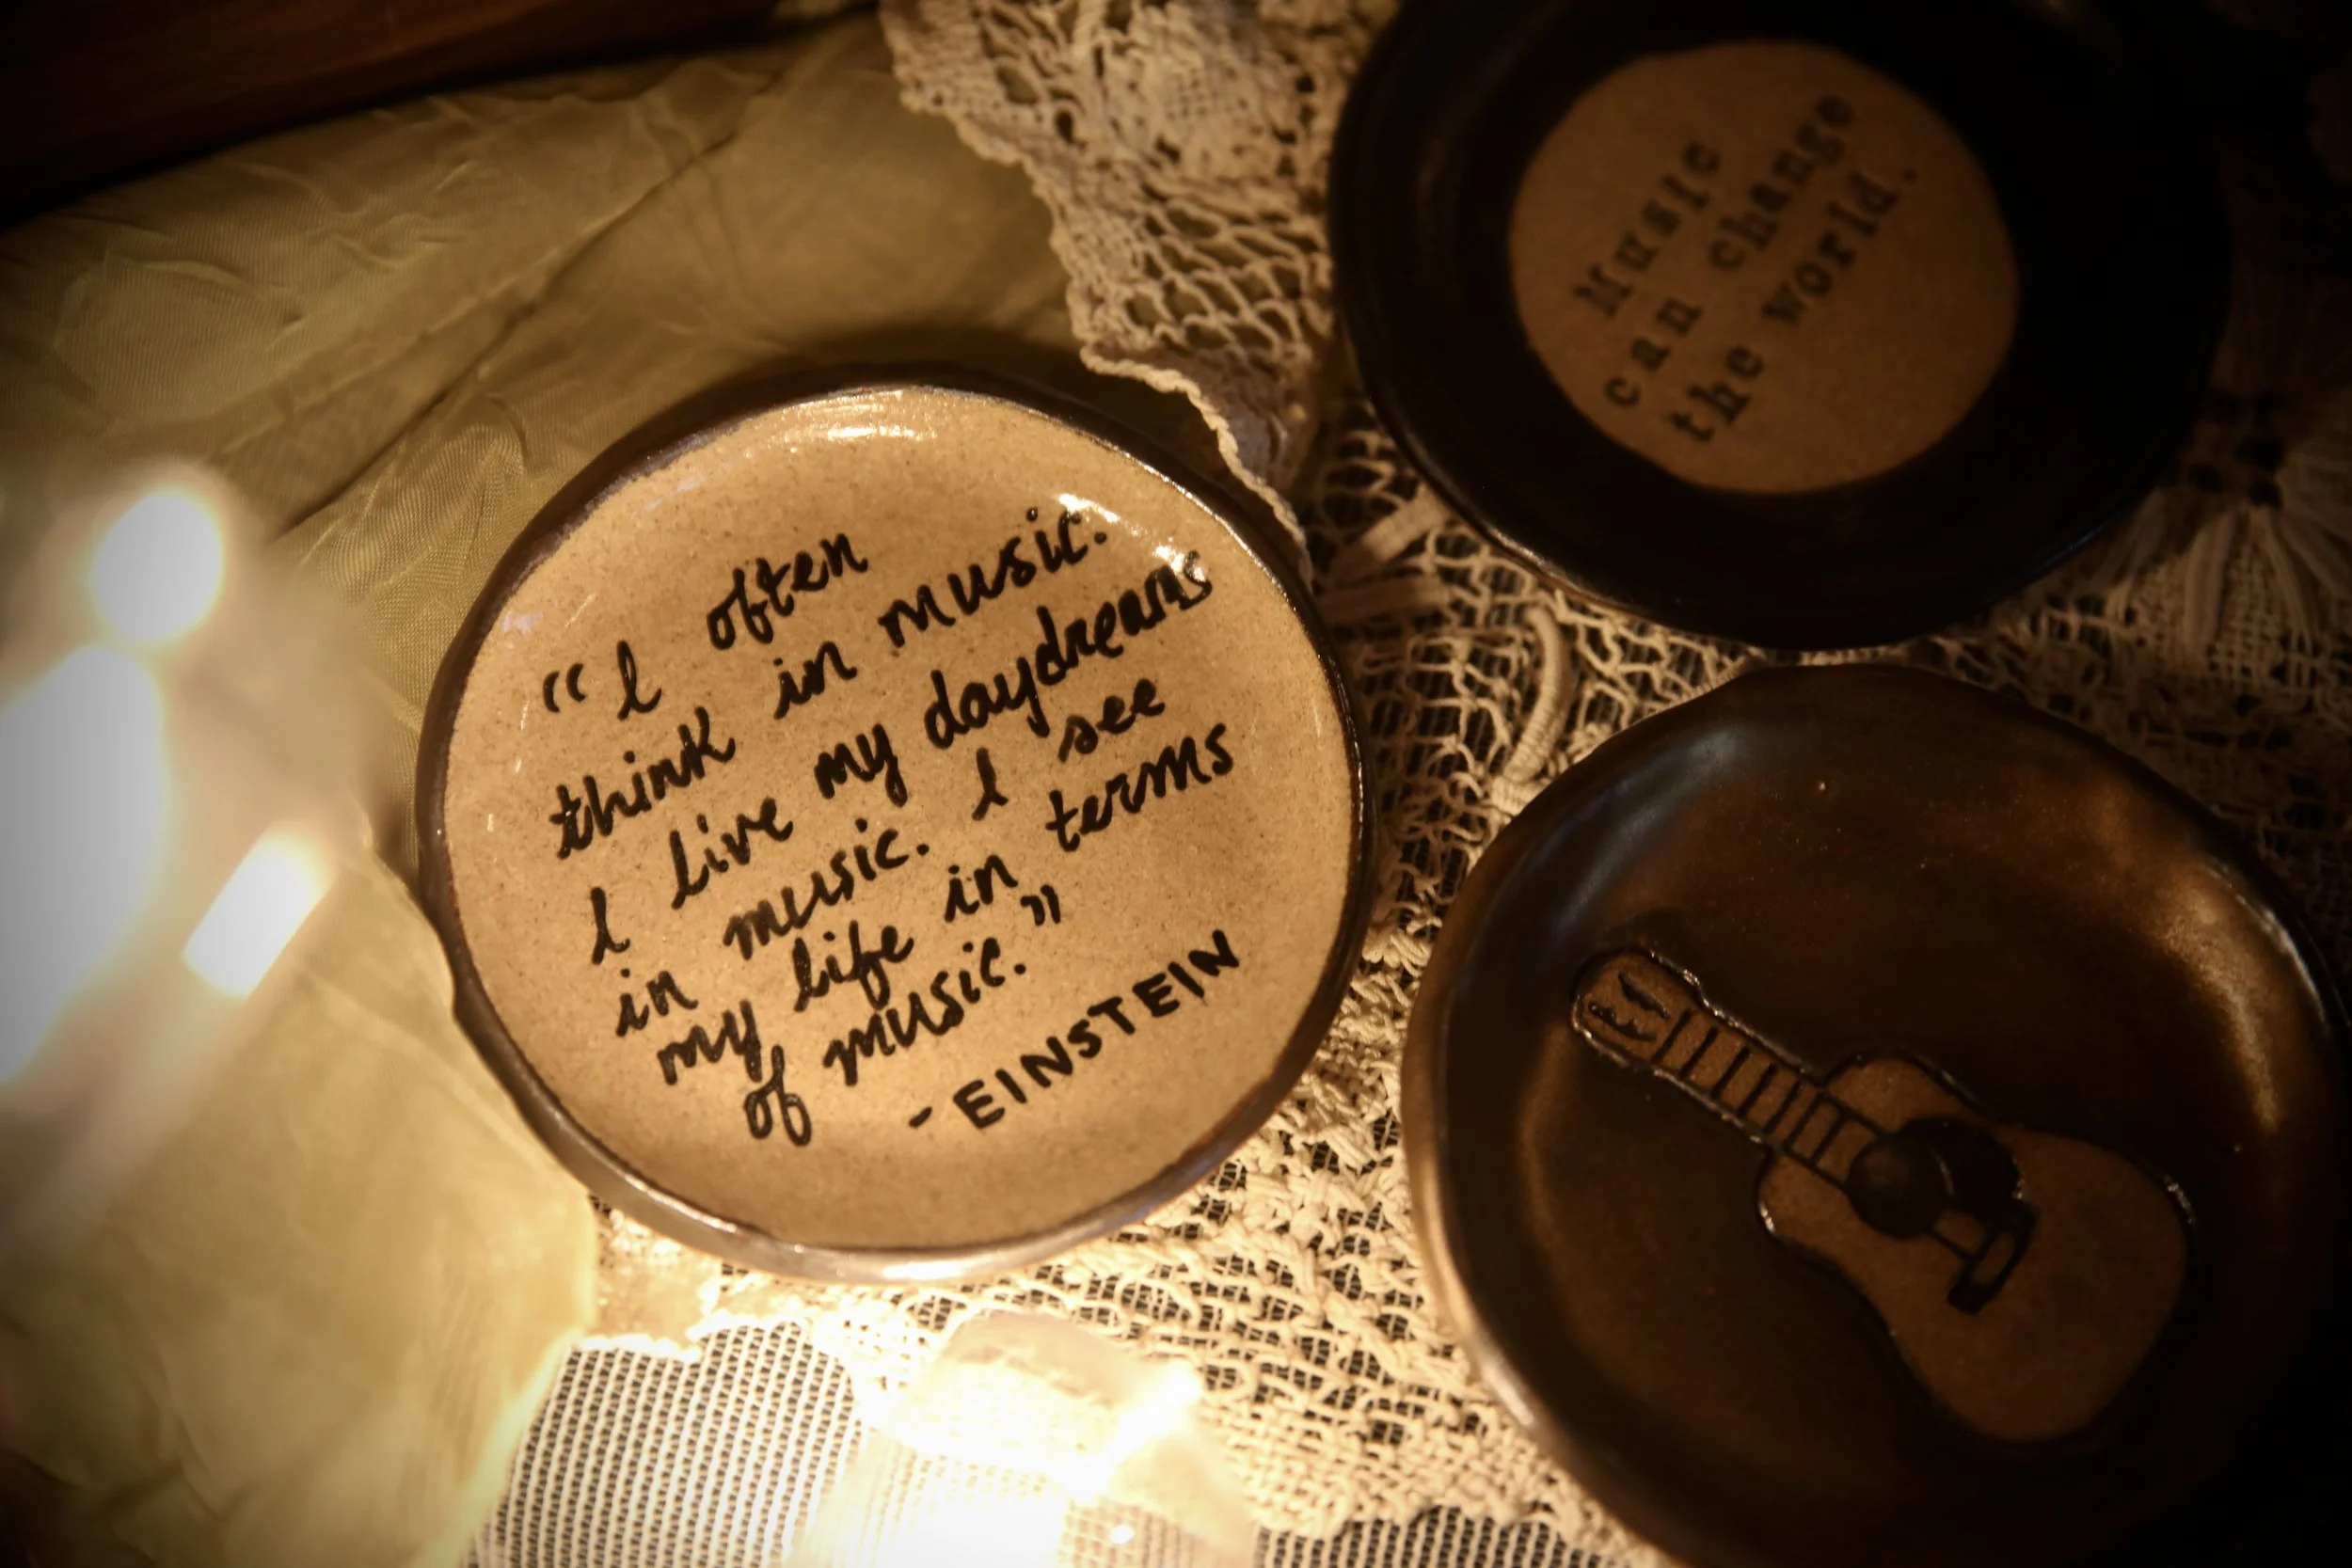 “I often
think in music.
I live my daydreams
in music. I see
my life in terms
of music.”
- EINSTEIN
Music
can change
the world.